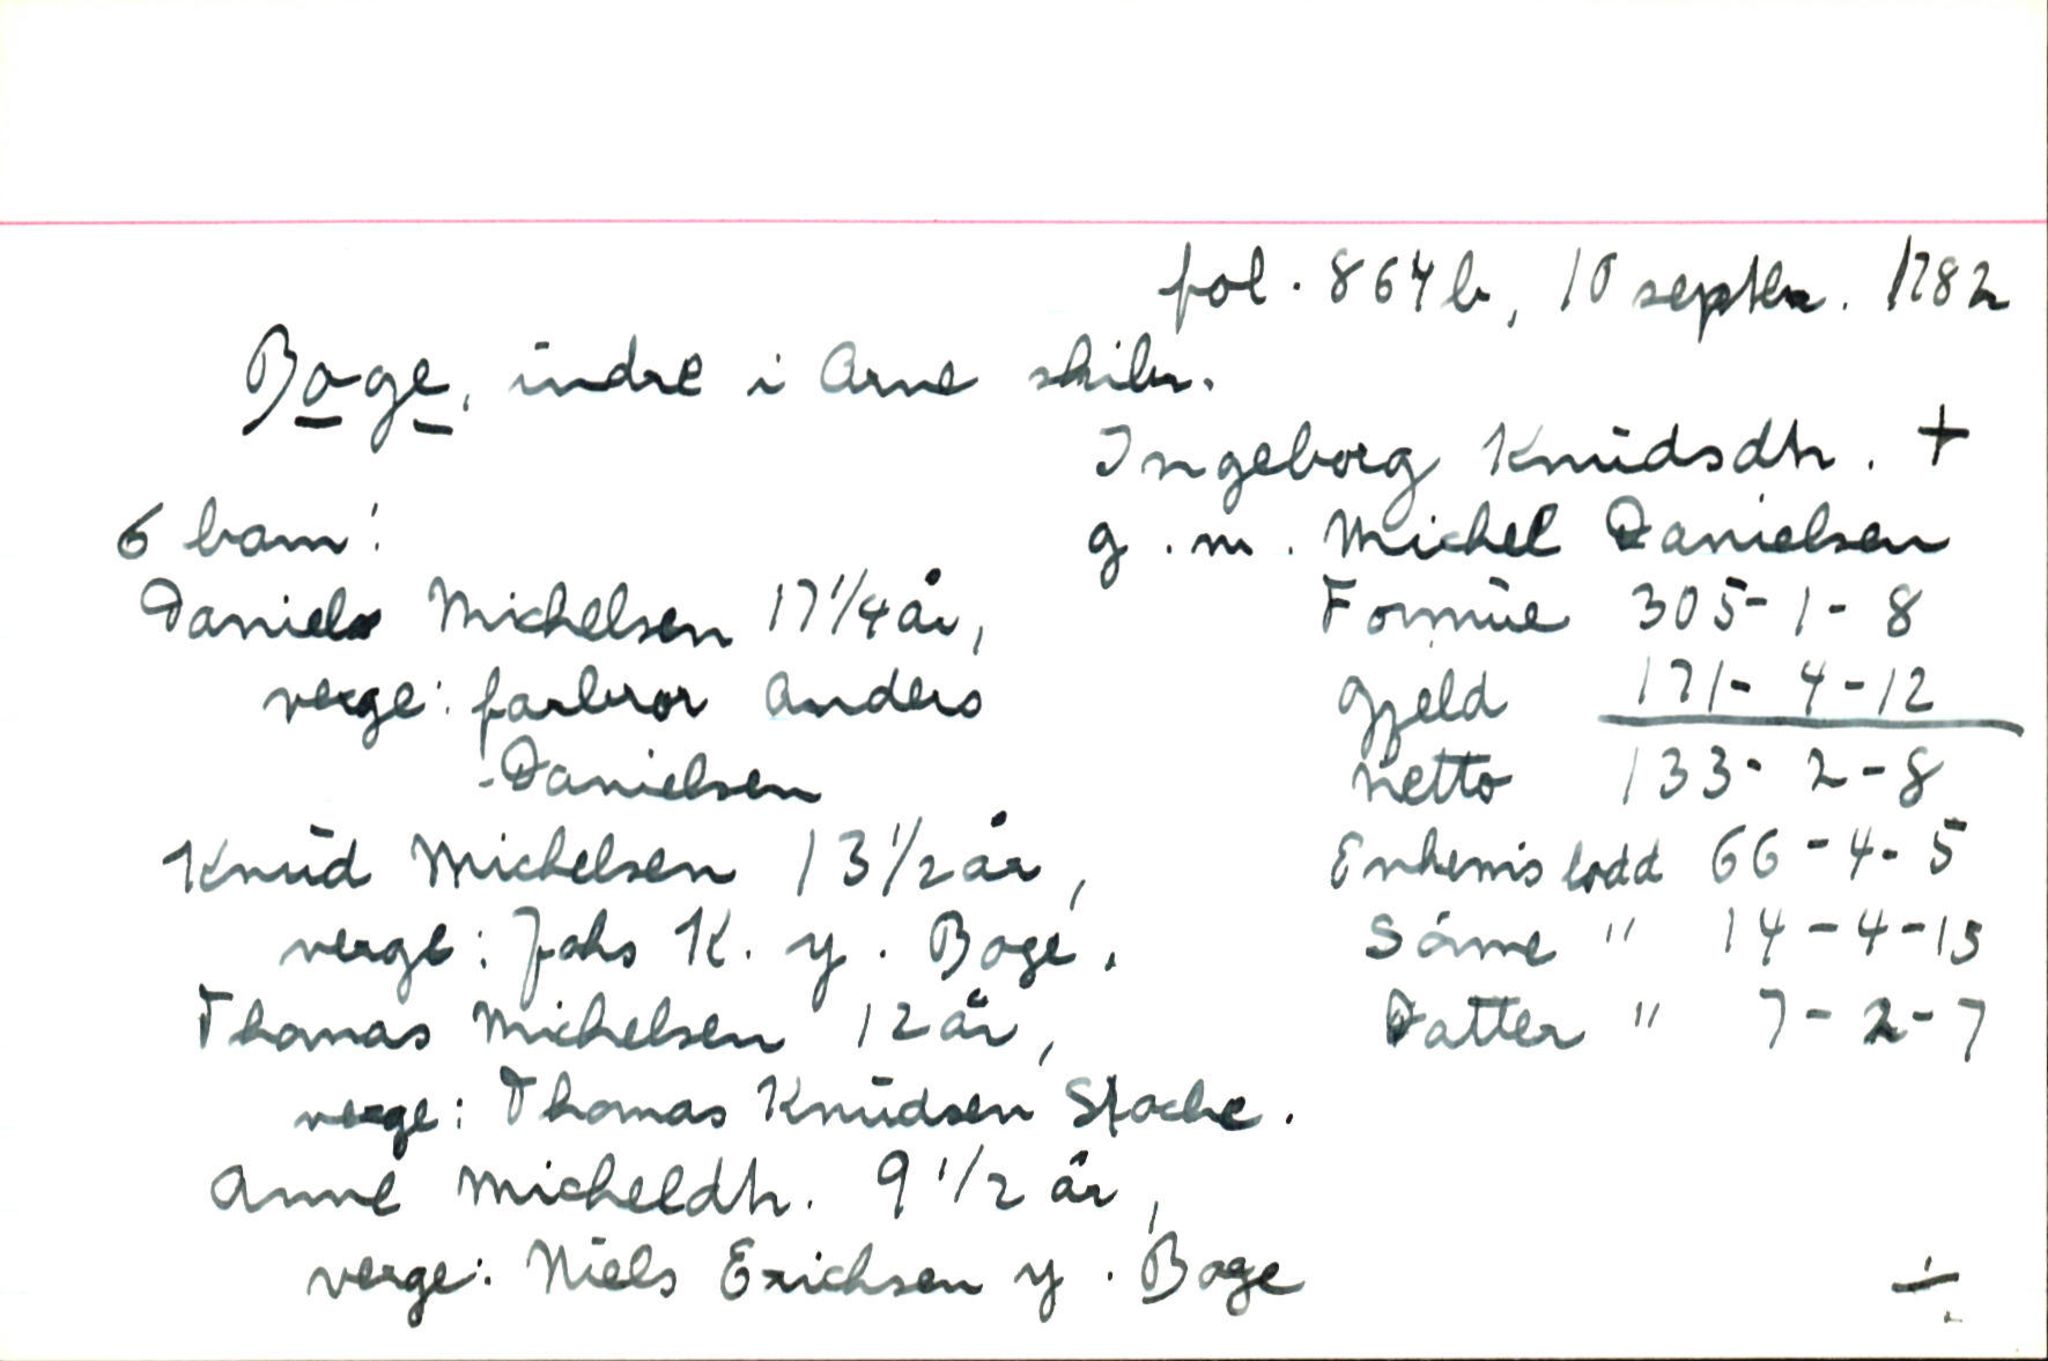 fol. 864b, 10 septbr. 1782
Boge, indre i Arne skibr.
Ingeborg Knudsdtr. +
6 barn:
g.m. Michel Danielsen
Daniel Michelsen 17 1/4 år,
Formue 305-1-8
verge: farbror Anders
Gjeld 171-4-12
Danielsen
Netto 133-2-8
Knud Michelsen 13 1/2 år,
Enkems lodd 66-4-5
verge: Johs K. y. Boge.
Sønne " 14-4-15
Thomas Michelsen 12 år,
Datter " 7-2-7
verge: Thomas Knudsen Stoche.
Anne Micheldtr. 9 1/2 år,
verge: Niels Erichsen y. Boge
÷